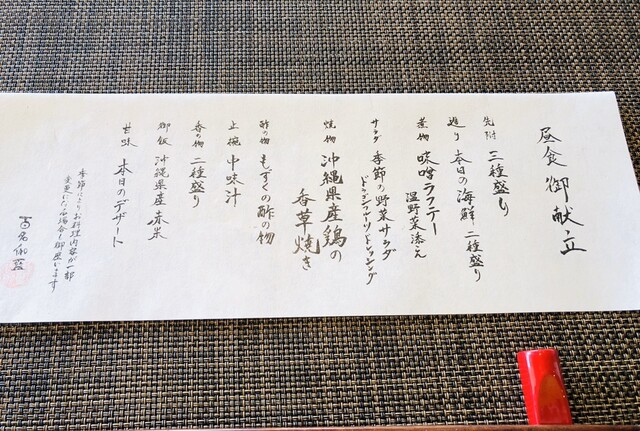 昼食御献立
先附 三種盛り
造り 本日の海鮮二種盛り
煮物 味噌ラフテー
温野菜添え
サラダ 季節の野菜サラダ
ドラゴンフルーツドレッシング
焼物 沖縄県産鶏の
香草焼き
酢の物 もずくの酢の物
止椀 中味汁
香の物 二種盛り
御飯 沖縄県産赤米
甘味 本日のデザート
季節によりお料理内容が一部
変更になる場合も御座います
百名伽藍